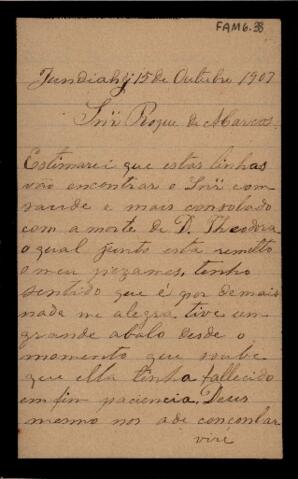 FAM6.38
Jundiahy 15 de Outubro 1907
Snr Roque de Marcos.
Estimarei que estas linhas
vão encontrar o Snr com
saude e mais consolado
com a morte de D. Theodora
o qual junto esta remetto
o meu pezames, tenho
sentido que é por demais
nada me alegra tive um
grande abalo desde o
momento que soube
que ella tinha fallecido
em fim paciencia, Deus
mesmo nos ade conçolar